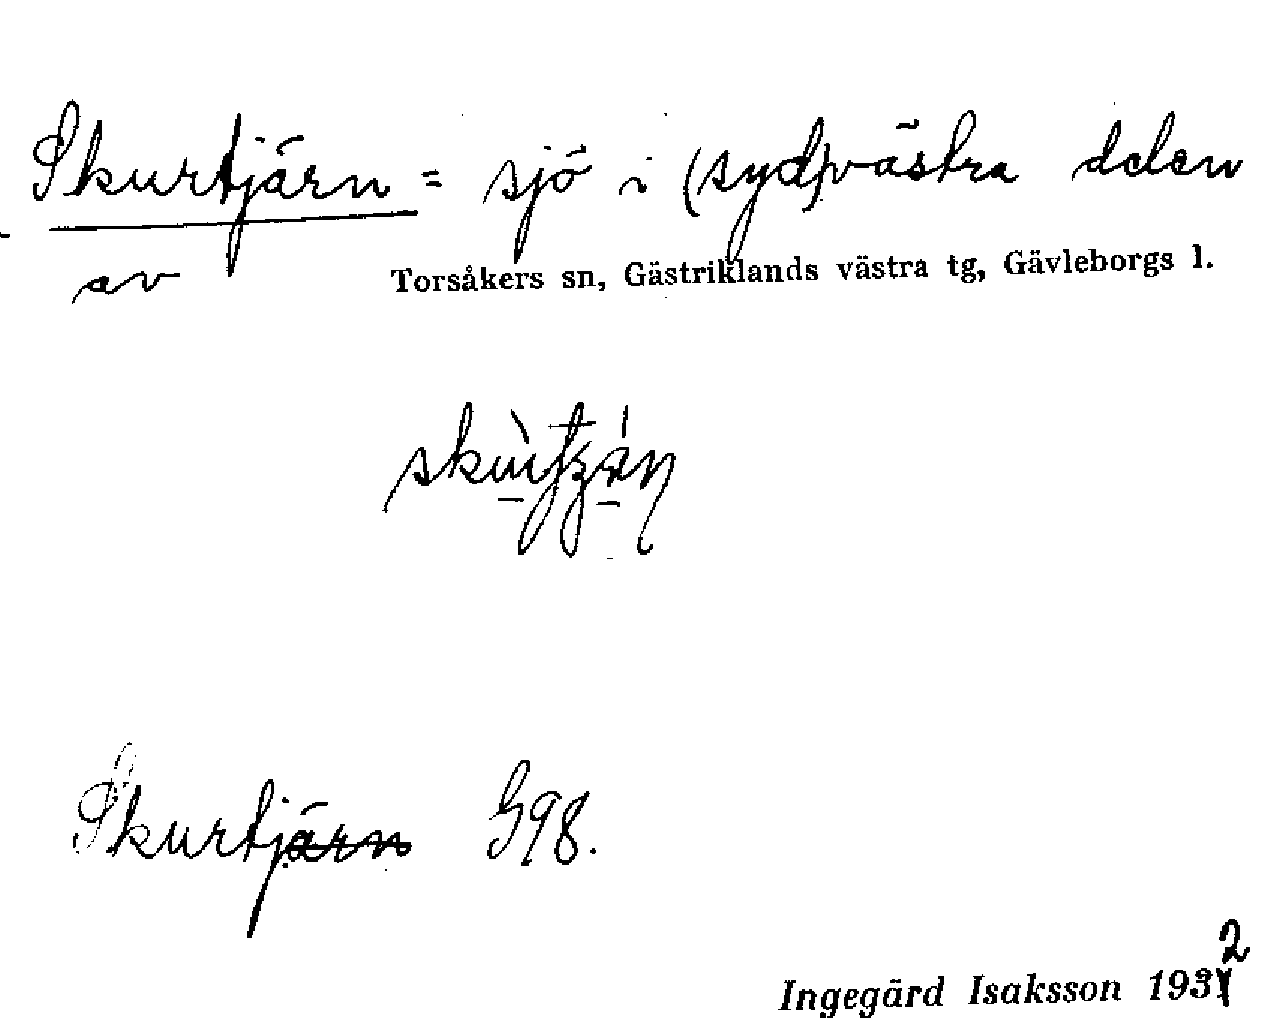 Skurtjärn = sjö i (syd)västra delen
av Torsåkers sn, Gästriklands västra tg, Gävleborgs l.
Skurtjärn G98.
Ingegärd Isaksson 1932